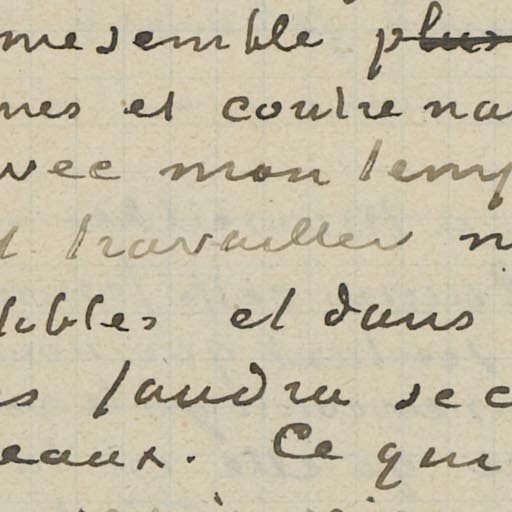 me semble plus
nes et contre na
vec mon temp
t travailler n
tables et dans
s faudra sec
eaux. Ce qui